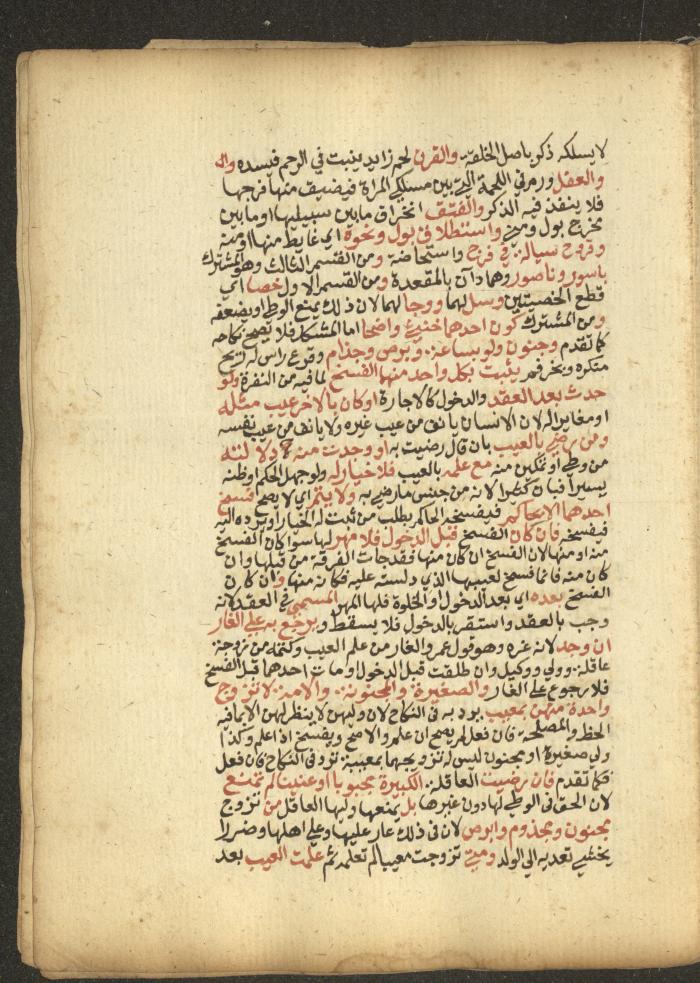 لا يسلكه ذكر باصل الخلقة والقرن لحم زايد ينبت في الرحم فيسده
والعفل ورم في اللحمة التي بين مسلكي المراة فيضيق منها فرجها
فلا ينفذ فيه الذكر والفتق انخراق ما بين سبيليها او ما بين
مخرج بول ومني واستطلاق بول ونحوه اي غايط منها او منه
وقروح سيالة في فرج واستحاضة ومن القسم الثالث وهو المشترك
باسور وناصور وهما دآن بالمقعدة ومن القسم الاول خصا اي
قطع الخصيتين وسل لهما ووجا لهما لان ذلك يمنع الوطي او يضعفه
ومن المشترك كون احدهما خنثي واضحا اما المشكل فلا يصح نكاحه
كما تقدم وجنون ولو ساعة وبرص وجذام وقرع راس له ريح
منكره وبخر فم يثبت بكل واحد منها الفسخ لما فيه من النفرة ولو
حدث بعد العقد والدخول كالاجارة او كان بالاخر عيب مثله
او مغاير له لان الانسان يانف من عيب غيره ولا يانف من عيب نفسه
ومن رضي بالعيب بان قال رضيت به او وجدت منه دلالته
من وطي او تمكين منه مع علمه بالعيب فلا خيار له ولو جهل الحكم او ظنه
يسيرا فبان كثيرا لانه من جنس ما رضي به ولا يتم اي لا يصح فسخ
احدهما الا بحاكم فيفسخه الحاكم بطلب من ثبت له الخيار او يرده اليه
فيفسخه فان كان الفسخ قبل الدخول فلا مهر لها سوا كان الفسخ
منه او منها لان الفسخ ان كان منها فقد جات الفرقة من قبلها وان
كان منه فانما فسخ لعيبها الذي دلسته عليه فكانه منها وان كان
الفسخ بعده اي بعد الدخول او الخلوة فلها المهر المسمي في العقد لانه
وجب بالعقد واستقر بالدخول فلا يسقط ويرجع به علي الغار
ان وجد لانه غره وهو قول عمر والغار من علم العيب وكتمه من زوجة
عاقلة وولي ووكيل وان طلقت قبل الدخول او مات احدهما قبل الفسخ
فلا رجوع علي الغار والصغيرة والمجنونة والامة لا تزوج
واحدة منهن بمعيب يرد به في النكاح لان وليهن لا ينظر لهن الا بما فيه
الحظ والمصلحة فان فعل لم يصح ان علم والا صح ويفسخ اذا علم وكذا
ولي صغير او مجنون ليس له تزويجهما بمعيبة ترد في النكاح فان فعل
فكما تقدم فان رضيت العاقلة الكبيرة مجبوبا او عنينا لم تمنع
لان الحق في الوطي لها دون غيرها بل يمنعها وليها العاقل من تزوج
مجنون ومجذوم وابرص لان في ذلك عار عليها وعلي اهلها وضررا
يخشي تعديه الي الولد ومتي تزوجت معيبا لم تعلمه ثم علمت العيب بعد